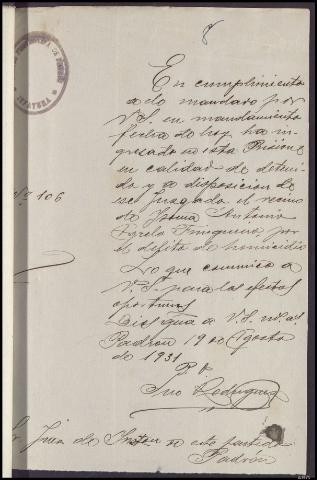 En cumplimiento
a lo mandado por
V.S. en mandamiento
fecha de hoy, ha in-
gresado en esta Prisión
en calidad de deteni-
do y a disposición de
ese Juzgado el vecino
de Antonio
por
el delito de homicidio
Lo que comunico a
V.S. para los efectos
oportunos
Dios gue a V.S. m. a.
Padrón 19 de Agosto
de 1931
Nº 106
JEFATURA
Sr Juez de Inston de este partido
Padrón